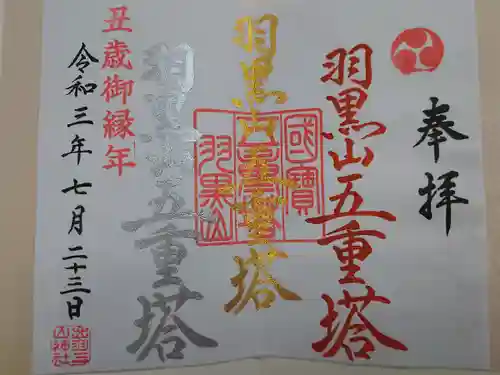 奉拝
羽黒山五重塔
羽黒山五重塔
羽黒山五重塔
國寶
五重塔
羽黒山
丑歳御縁年
令和三年七月二十三日
出羽三
山神社